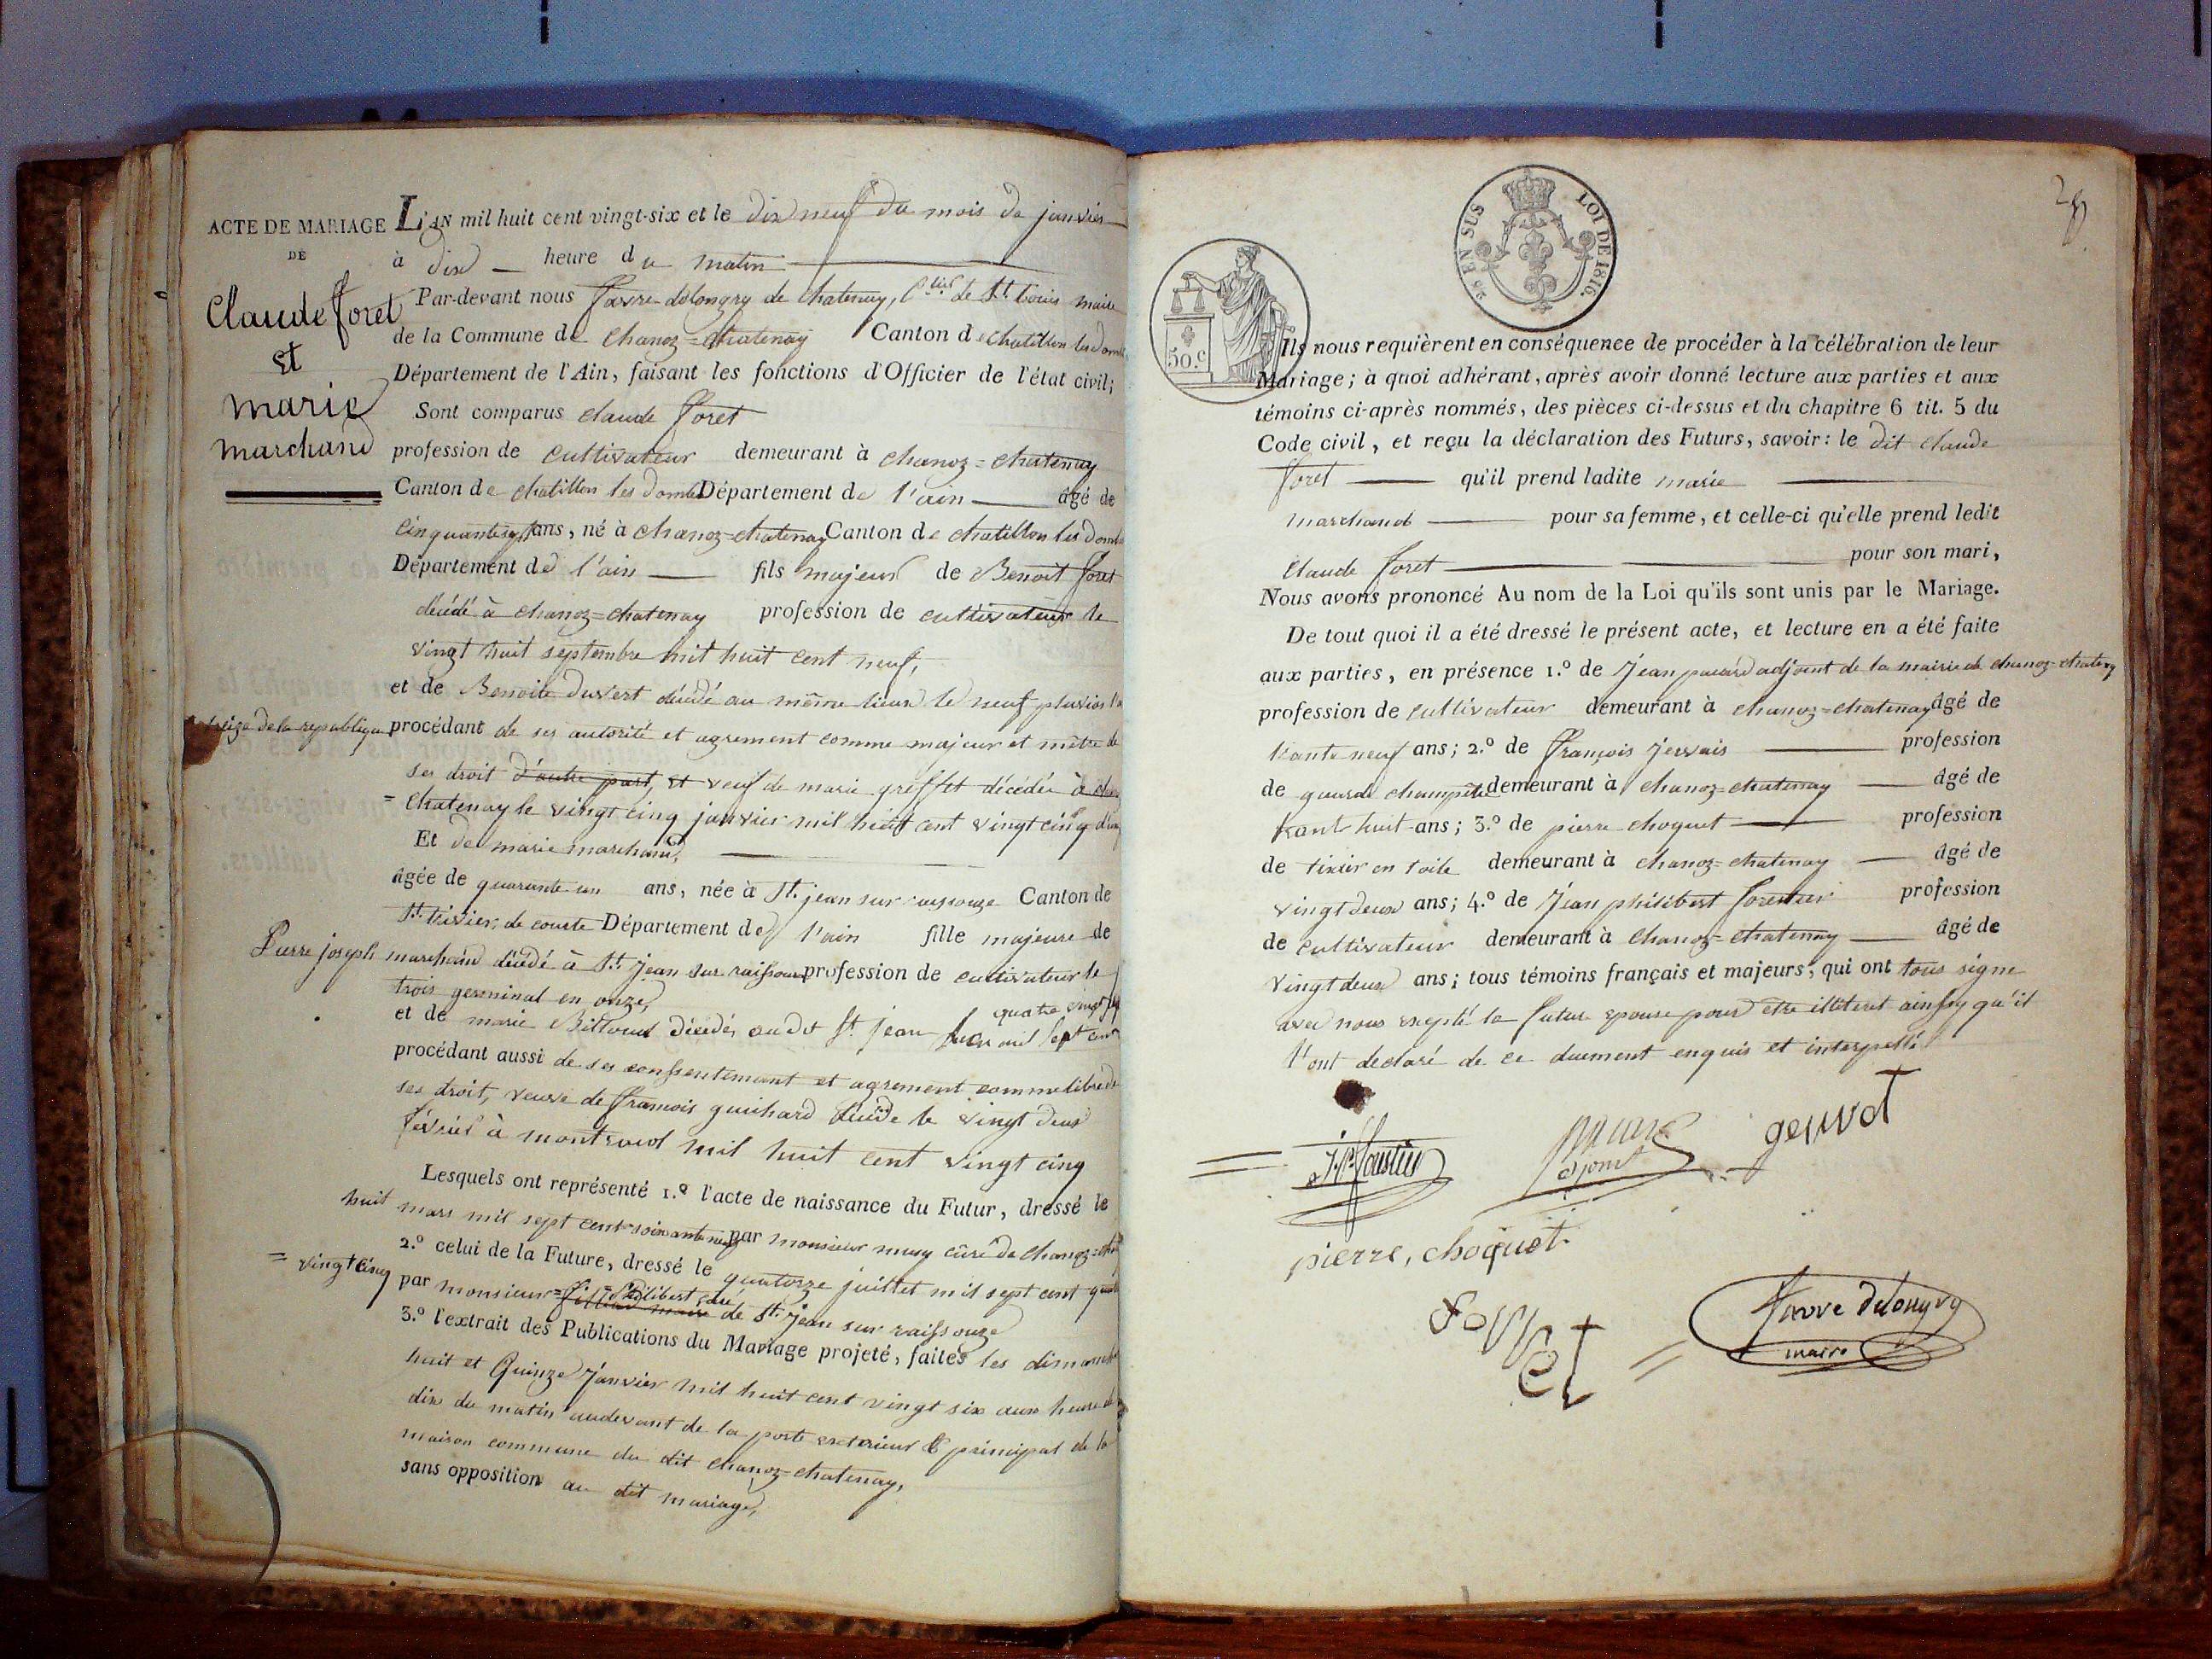 ACTE DE MARIAGE
DE
Claude foret
et
marie
marchand
L'AN mil huit cent vingt-six et le dix neuf du mois de janvier
à dix heure du matin
Par-devant nous favre-delongry de Chatenay, de St. Louis maire
de la Commune de Chanoz=Chatenay Canton de chatillon les Domb
Département de l'Ain, faisant les fonctions d'Officier de l'état civil;
Sont comparus claude foret
profession de cultivateur demeurant à chanoz=chatenay
Canton de chatillon les domb Département de l'ain âgé de
cinquante sept ans, né à chanoz=chatenay Canton de chatillon les domb
Département de l'ain fils majeur de Benoit foret
décédé à chanoz=chatenay profession de cultivateur le
vingt huit septembre mil huit cent neuf,
et de Benoite duvert décédé au même lieux le neuf pluvios l'a
treize de la republique procédant de ses autorité et agrement comme majeur et mètre de
ses droit d'autre part, et veuf de marie greffet décédée à chan
=chatenay le vingt cinq janvier mil huit cent vingt cinq d'un
Et de marie marchand,
âgée de quarante un ans, née à St. jean sur raissouze Canton de
St. trivier, de courte Département de l'ain fille majeure de
Pierre joseph marchand décédé à St. jean sur raissouz profession de cultivateur le
trois germinal en onze,
quatre vingt
et de marie Billoud décédé, au dit St. jean mil sept cent
procédant aussi de ses consentement et agrement comme libre de
ses droit, veuve de francois guichard décédé le vingt deux
février à montracol mil huit cent vingt cinq
Lesquels ont représenté 1.º l'acte de naissance du Futur, dressé le
huit mars mil sept cent soixante neuf par monsieur muzy cûré de Chanoz=chat
2.º celui de la Future, dressé le quatorze juillet mil sept cent quat
=vingt cinq par monsieur philibert curé de St. jean sur raissouze
3.º l'extrait des Publications du Mariage projeté, faites les dimanch
huit et Quinze Janvier mil huit cent vingt six aux heure de
dix du matin audevant de la porte exterieur & principal de la
maison commune du dit Chanoz-chatenay,
sans opposition au dit mariage,
28
2e EN SUS LOI DE 1816.
50.c
Ils nous requièrent en conséquence de procéder à la célébration de leur
Mariage; à quoi adhérant, après avoir donné lecture aux parties et aux
témoins ci-après nommés, des pièces ci-dessus et du chapitre 6 tit. 5 du
Code civil, et reçu la déclaration des Futurs, savoir: le dit claude
foret qu'il prend ladite marie
marchand pour sa femme, et celle-ci qu'elle prend ledit
Claude foret pour son mari,
Nous avons prononcé Au nom de la Loi qu'ils sont unis par le Mariage.
De tout quoi il a été dressé le présent acte, et lecture en a été faite
aux parties, en présence 1.º de Jean adjoint de la mairie de chanoz-chatenay
profession de cultivateur demeurant à chanoz=chatenay âgé de
neuf ans; 2.º de françois jervais profession
de garde champetre demeurant à chanoz-chatenay âgé de
huit ans; 3.º de pierre choquet profession
de tixier en toile demeurant à chanoz=chatenay âgé de
vingt deux ans; 4.º de Jean philibert forestier profession
de cultivateur demeurant à Chanoz=chatenay âgé de
vingt deux ans; tous témoins français et majeurs, qui ont tous signe
avec nous excepté la future epouse pour etre illiteret ainsy qu'il
l'ont declaré de ce duement enquis et interpellé
adjoint
pierre, choquet.
foret
favre Delongry
maire